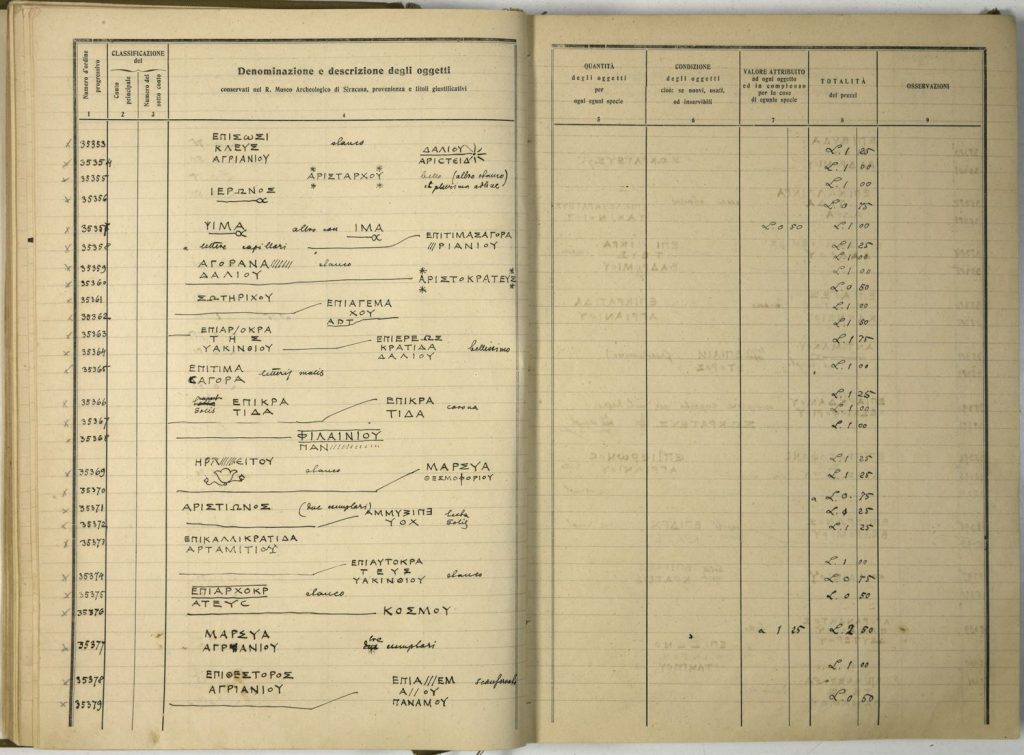 CLASSIFICAZIONE
del
Numero d'ordine progressivo
Conto principale
Numero del sotto conto
Denominazione e descrizione degli oggetti
conservati nel R. Museo Archeologico di Siracusa, provenienza e titoli giustificativi
QUANTITÀ
degli oggetti
per
ogni eguni specie
CONDIZIONE
degli oggetti
cioè: se nuovi, usati,
od inservibili
VALORE ATTRIBUITO
ad ogni oggetto
ed in complesso
per le cose
di eguale specie
TOTALITÀ
dei prezzi
OSSERVAZIONI
1 2 3 4 5 6 7 8 9
35353 ΕΠΙΣΩΣΙ
ΚΛΕΥΣ
ΑΓΡΙΑΝΙΟΥ
35354 ΔΑΛΙΟΥ
ΑΡΙΣΤΕΙΔ
L. 1 25
35355 ΑΡΙΣΤΑΡΧΟΥ
L. 1 00
35356 ΙΕΡΩΝΟΣ
L. 0 75
35357 ΙΜΑ altro con ΙΜΑ
L. 0 50 L. 1 00
35358 a lettere capillari ΕΠΙΤΙΜΑΣΑΓΟΡΑ
///ΡΙΑΝΙΟΥ
L. 1 25
35359 ΑΓΟΡΑΝΑ//////
ΔΑΛΙΟΥ
L. 1 00
35360 ΑΡΙΣΤΟΚΡΑΤΕΥΣ
L. 1 00
35361 ΣΩΤΗΡΙΧΟΥ
L. 0 50
35362 ΕΠΙΑΓΕΜΑ
ΧΟΥ
ΑΡΤ
L. 1 00
35363 ΕΠΙΑΡ/ΟΚΡΑ
ΤΗΣ
ΥΑΚΙΝΘΙΟΥ
L. 1 50
35364 ΕΠΙΕΡΕΩΣ
ΚΡΑΤΙΔΑ
ΔΑΛΙΟΥ bellissimo
L. 1 75
35365 ΕΠΙΤΙΜΑ
ΣΑΓΟΡΑ
L. 1 00
35366 ΕΠΙΚΡΑ
ΤΙΔΑ
L. 1 25
35367 ΕΠΙΚΡΑ
ΤΙΔΑ corona
L. 1 00
35368 ΦΙΛΑΙΝΙΟΥ
ΠΑΝ//////////
L. 1 00
35369 ΕΙΤΟΥ
L. 1 25
35370 ΜΑΡΣΥΑ
ΘΕΣΜΟΦΟΡΙΟΥ
L. 1 25
35371 ΑΡΙΣΤΙΩΝΟΣ (due esemplari)
a L. 0 75
35372
ΥΟΧ
L. 1 25
35373 ΕΠΙΚΑΛΛΙΚΡΑΤΙΔΑ
ΑΡΤΑΜΙΤΙΟΥ
L. 1 25
35374 ΕΠΙΑΥΤΟΚΡΑ
ΤΕΥΣ
ΥΑΚΙΝΘΙΟΥ
L. 1 00
35375 ΕΠΙΑΡΧΟΚΡ
ΑΤΕΥC
L. 0 75
35376 ΚΟΣΜΟΥ
L. 0 50
35377 ΜΑΡΣΥΑ
ΑΓΡΙΑΝΙΟΥ tre esemplari
a 1 25 L. 2 50
35378 ΕΠΙΘΕΣΤΟΡΟΣ
ΑΓΡΙΑΝΙΟΥ
L. 1 00
35379 ΕΠΙΑ///ΕΜ
Α//ΟΥ
ΠΑΝΑΜΟΥ
L. 0 50